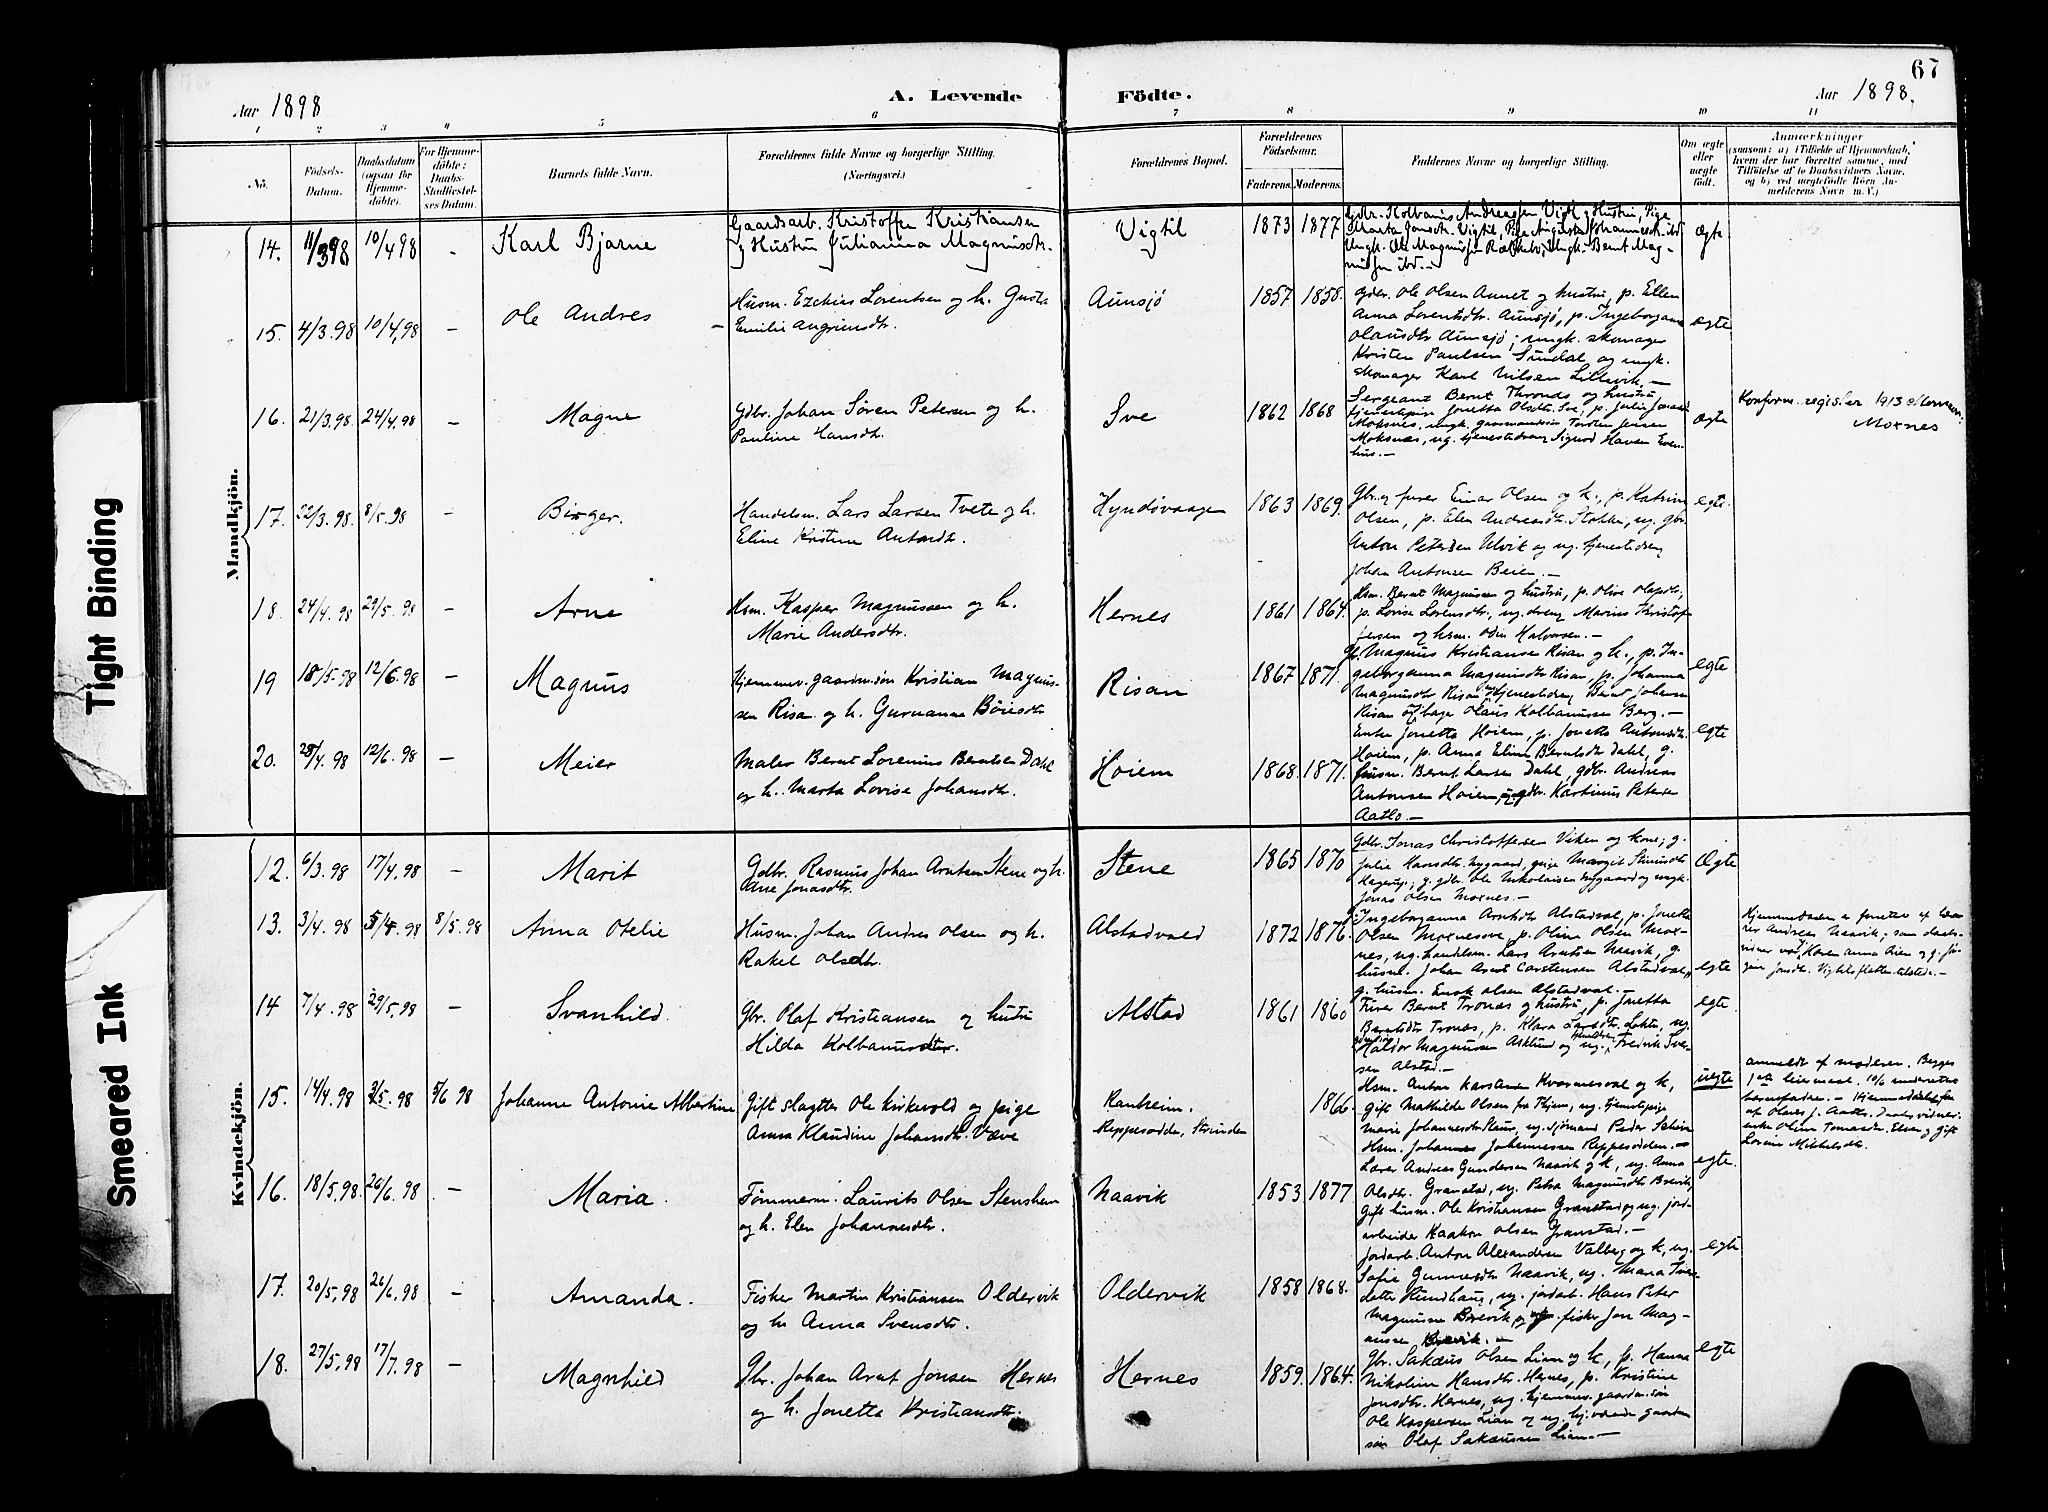 67
Aar 1898
A. Levende Födte.
Aar 1898.
1 2 3 4 5 6 7 8 9 10 11
No.
Födsels-
Datum.
Daabsdatum
(ogsaa for
Hjemme-
döbte).
For Hjemme-
döbte:
Daabs-
Stadfæstel-
ses Datum.
Barnets fulde Navn.
Forældrenes fulde Navne og borgerlige Stilling.
(Næringsvei.)
Forældrenes Bopæl.
Forældrenes
Födselsaar.
Faderens. Moderens.
Faddernes Navne og borgerlige Stilling.
Om ægte
eller
uægte
födt.
Anmærkninger
(saasom: a) i Tilfælde af Hjemmedaab,
hvem der har forrettet samme, med
Tilföielse af to Daabsvidners Navne,
og b) ved uægtefödte Börn An-
melderens Navn m. V.)
Mandkjön.
14. 11/3 98 10/4 98 - Karl Bjarne
Gaardsarb. Kristoffer Kristiansen
og Hustru Julianna Magnusdtr.
Vigtil 1873 1877
ægte
15. 4/3.98 10/4.98 - Ole Andres -
Husm. Ezekias Lorentsen og h. Gusta
Emilie
Aunsjø 1857 1858.
Gdbr. Ole Olsen Aunet og hustru, p. Ellen
Anna Lorentsdtr. Aunsjø, p. Ingeborganna
Olausdtr Aunsjø; ungk. skomager
Kristen Paulsen Sundal og ungk.
skomager Karl Nilsen Lillevik. -
ægte
16. 21/3.98. 24/4.98 - Magne
Gdbr. Johan Søren Petersen og h.
Pauline Hansdtr.
Sve 1862 1868
Sergeant Bernt Thronæs og hustru
ægte
Konfirm. register 1913
Moxnes
17. 22/3.98. 8/5.98 - Birger.
Handelsm. Lars Larsen Tvete og h.
Eline Kristine Antondtr.
Hyndøvaagen 1863 1869.
Gbr. og furer Einar Olsen og k., p. Katrine
Olsen, p. Elen Andreasdtr. Stokke, ug. gbr.
Anton Petersen Ulvik og ug. tjenestedreng
Johan Antonsen Beien. -
egte.
18. 24/4.98 29/5.98 - Arne
Hsm. Kasper Magnussen og h.
Marie Andersdtr.
Hernes 1861 1864.
Hsm. Bernt Magnussen og hustru, p. Olive Olapdtr.,
p. Lovise Lorensdtr., ug. dreng Marius Kristof-
fersen og hsm. Odin Halvorsen. -
19 18/5.98 12/6.98 - Magnus
Hjemmev. gaardm.søn Kristian Magnus-
sen Risan og h. Guruanna Böiesdtr
Risan 1867 1871.
Gbr. Magnus Kristiansen Risan og h., p. In-
geborganna Magnusdtr Risan, p. Johanna
Magnusdtr Risan, tjenestedreng Bernt Johnsen
Risan og bager Olaus Kolbanussen Berg. -
egte
20. 28/4.98 12/6.98 - Meier
Maler Bernt Lorenius Berntsen Dahl
og h. Marta Lovise Johansdtr.
Hoiem 1868. 1871.
Enke Jonetta Hoiem, p. Jonetta Antonsdtr.
Hoiem, p. Anna Elina Berntsdtr Dahl, g.
husm. Bernt Larsen Dahl, gdbr. Andreas
Antonsen Hoiem, og gdbr. Kartinus Petersen
Aatlo. -
egte
Kvindekjön.
12. 6/3.98 17/4.98 - Marit
Gdbr. Rasmus Johan Arntsen Stene og h.
Ane Jonasdtr.
Stene 1865 1870
Gdbr. Jonas Christoffersen Viken og kone; g.
Julie Hansdtr. Nygaard, pige Margit
g. gdbr. Ole Nikolaisen Nygaard og ungk.
Jonas Olsen Moxnes. -
Ægte
13. 3/4.98 5/4.98 8/5.98 Anna Otelie
Husm. Johan Andres Olsen og h.
Rakel Olsdtr.
Alstadvald 1872 1876.
Ingeborganna Arntsdtr Alstadval, p. Jonetta
Olsen Moxnesøve, p. Oline Olsen Mox-
nes, ug. handelsm. Lars Arntsen Naavik, g.
husm. Johan Arnt Carstensen Alstadval,
g. husm. Enok Olsen Alstadval. -
egte
Hjemmedaaben er forrettet af lær-
er Andreas Naavik; som daabs-
vidner var Karen Anna Aren og g.
tilstede. -
14 7/4.98 29/5.98 - Svanhild.
Gbr. Olaf Kristiansen og hustru
Hilda Kolbanusdtr.
Alstad 1861 1860
Furer Bernt Tronæs og hustru, p. Jonetta
Berntsdtr Tronæs, p. Klara Larsdtr. Lokta, ug.
Haldor Magnussen Asklund og ug. Fredrik Iver-
sen Alstad. -
egte.
15. 14/4.98 3/5.98 5/6 98 Johanne Antonie Albertine
Gift slagter Ole Kirkevold og pige
Anna Klaudine Johansdtr. Væve
Ranheim.
Reppesødden, Strinden
1866.
Hsm. Anton Karstensen Kvarmesval og k,
gift Mathilde Olsen fra Thjem, ug. tjenestepige
Marie Johannesdtr ug. sjömand Peder
Hsm. Johannes Johannessen Reppesödden. -
uegte
anmeldt af moderen. Begges
1ste leiermaal. 10/6 underrettet
barnefaderen. - Hjemmedøbt
af Olaus J. Aatlo. Daabsvidner:
enke Oline Tomasdtr. Elven og gift
Lorense Mikkelsdtr.
16. 18/5.98. 26/6.98 - Maria.
Tømmerm. Laurits Olsen Stenshem
og h. Elen Johannesdtr.
Naavik 1853 1877
Lærer Andreas Gundersen Naavik og k, ug. Anna
Olsdtr. Granstad, ug. Petra Magnusdtr Brevik,
gift husm. Ole Kristiansen Granstad og ug. jord-
arbeider Haakon Olsen Granstad. -
egte.
17. 20/5.98 26/6.98 - Amanda.
Fisker Martin Kristiansen Oldervik
og h. Anna Svensdtr.
Oldervik 1858 1868.
Jordarb. Anton Alexandersen Valberg og k, ug.
Sofie Gunnersdtr Naavik, ug. Maria Tver-
datter Hundhaug, ug. jordarb. Hans Peter
Magnussen Brevik, og fisker Jon Mag-
nussen Brevik. -
egte
18. 27/5.98 17/7.98 - Magnhild
Gbr. Johan Arnt Jonsen Hernes
og h. Jonetta Kristiansdtr.
Hernes 1859. 1864.
Gbr. Sakæus Olsen Lian og k, p. Hanna
Nikoline Hansdtr. Hernes, p. Kristine
Jonsdtr. Hernes, ug. hjemmev. gaardm.søn
Ole Kaspersen Lian og ug. hj.værende gaardm.
søn Olaf Sakæussen Lian. -
egte
Tight Binding
Smeared Ink